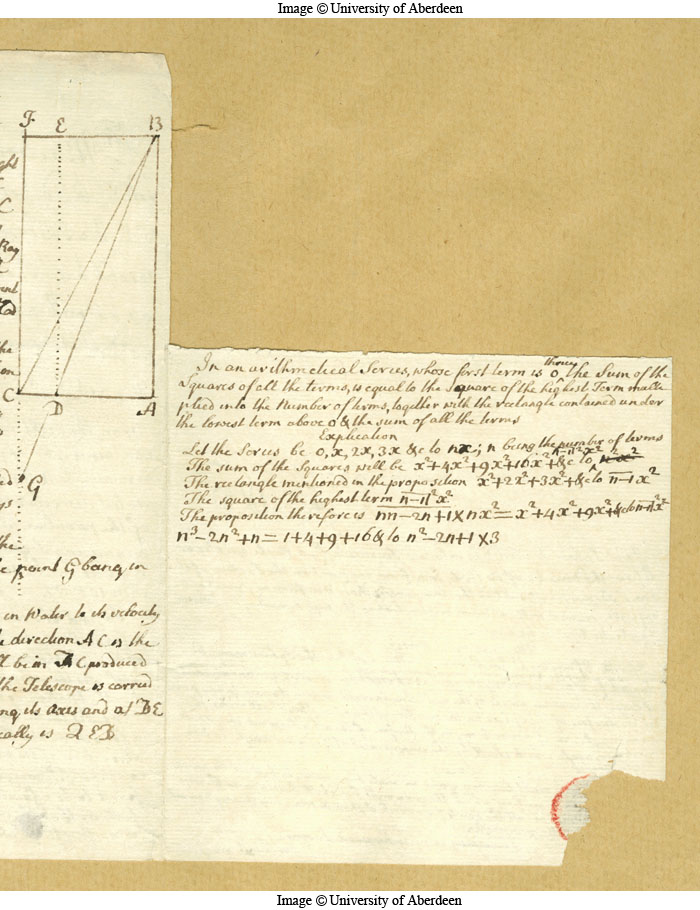 Image © University of Aberdeen
F E B
C
Ray
the
C D A
G
the
point G being in
in Water to its velocity
direction AC is the
be in AC produced
the Telescope is carried
its axis and as BE
is QED
In an arithmetical Series, whose first term is 0, thrice the Sum of the
Squares of all the terms, is equal to the Square of the highest Term multi
plied into the Number of terms, together with the rectangle contained under
the lowest term above 0 & the sum of all the terms
Explication
Let the Series be 0, x, 2x, 3x &c to nx; n being the number of terms
The sum of the Squares will be x²+4x²+9x²+16x²+&c to n-1|²x²
The rectangle mentioned in the proposition x²+2x²+3x²+&c to n-1x²
The square of the highest term n-1|²x²
The proposition therefore is nn-2n+1×nx²=x²+4x²+9x²+&c to n-1|²x²
n³-2n²+n=1+4+9+16&c to n²-2n+1×3
Image © University of Aberdeen